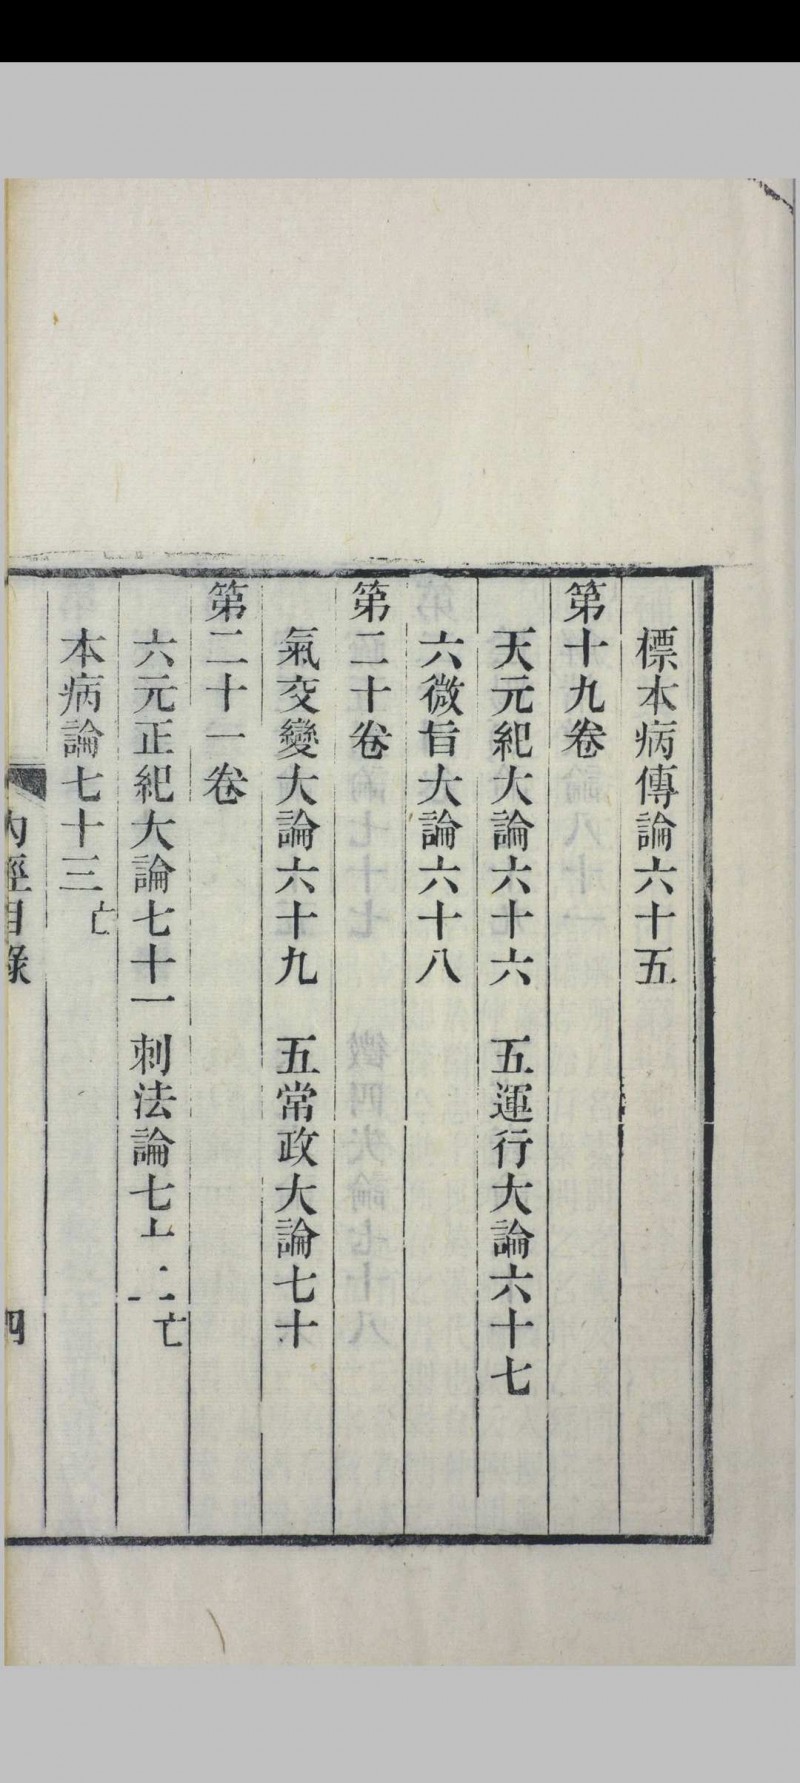 標本病傳論六十五
第十九卷
天元紀大論六十六　五運行大論六十七
六微旨大論六十八
第二十卷
氣交變大論六十九　五常政大論七十
第二十一卷
六元正紀大論七十一刺法論七十二亡
本病論七十三亡
內經目錄　四